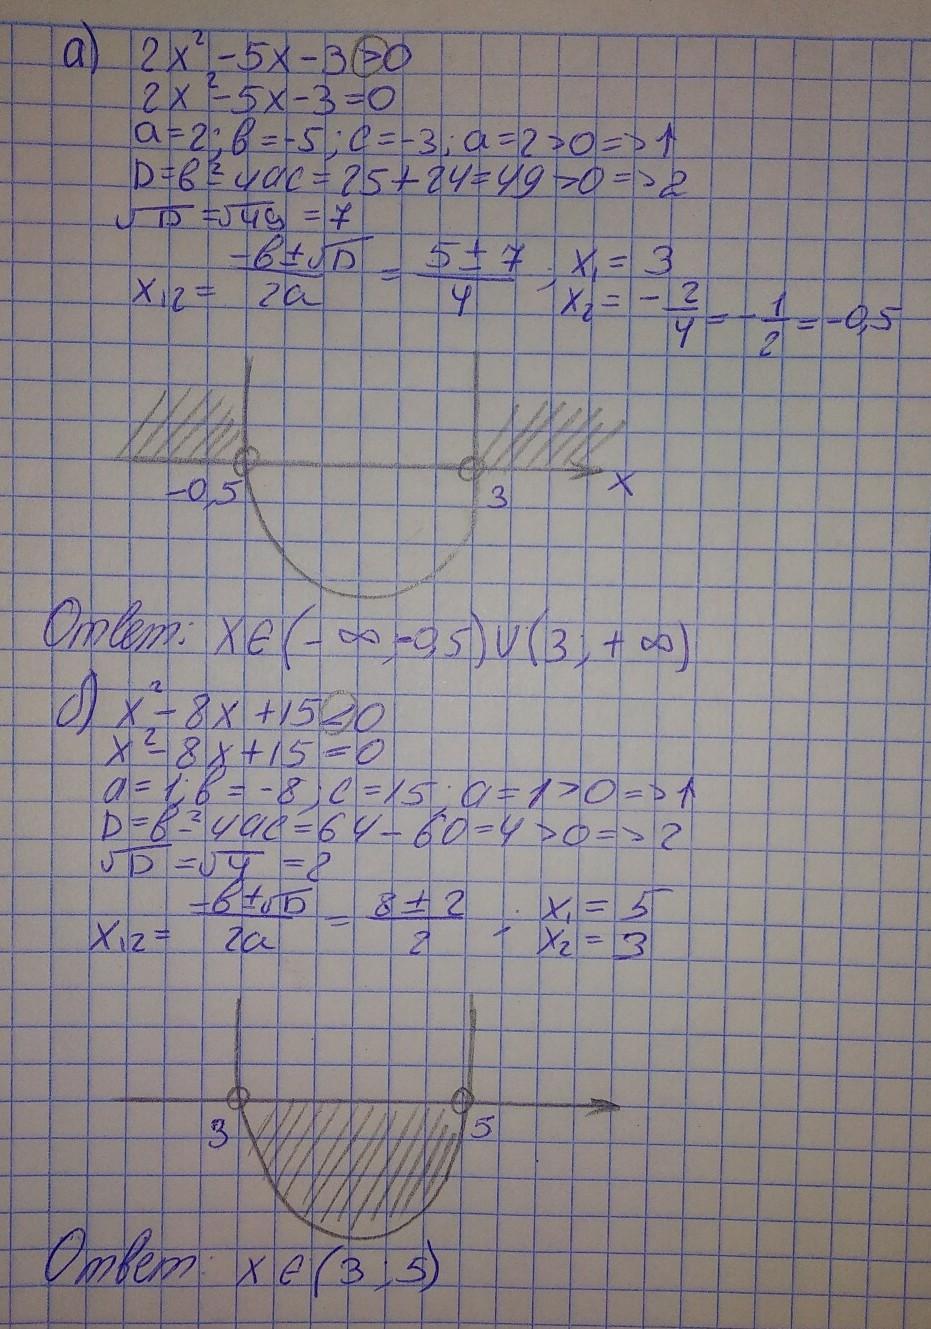 а) 2x² - 5x - 3 > 0
2x² - 5x - 3 = 0
a = 2; в = -5; c = -3; a = 2 > 0 => ↑
D = в² - 4ac = 25 + 24 = 49 > 0 => 2
√D = √49 = 7
x₁,₂ = (-в ± √D)/(2a) = (5 ± 7)/4; x₁ = 3
x₂ = -2/4 = -1/2 = -0,5
-0,5 3 x
Ответ: x ∈ (-∞; -0,5) ∪ (3; +∞)
б) x² - 8x + 15 < 0
x² - 8x + 15 = 0
a = 1; в = -8; c = 15; a = 1 > 0 => ↑
D = в² - 4ac = 64 - 60 = 4 > 0 => 2
√D = √4 = 2
x₁,₂ = (-в ± √D)/(2a) = (8 ± 2)/2; x₁ = 5
x₂ = 3
3 5
Ответ: x ∈ (3; 5)